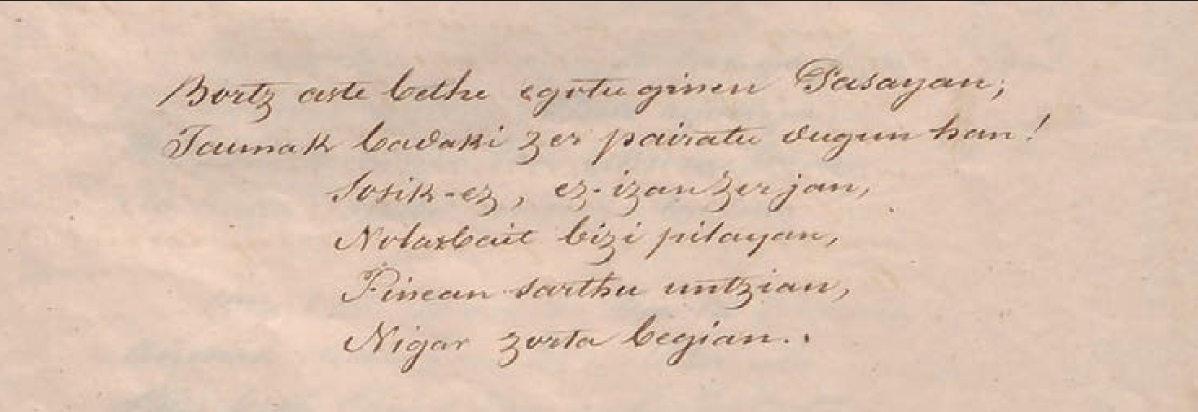 Bortz aste bethe egotu ginen Pasayan;
Jaunak badaki zer pairatu dugun han!
Sosik-ez, ez-izan zer jan,
Nolazbait bizi pilayan,
Finean sarthu untzian,
Nigar zorta begian..